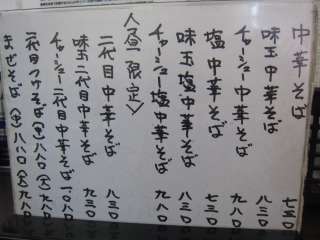 中華そば 七五〇
味玉中華そば 八三〇
チャーシュー中華そば 九八〇
塩中華そば 七三〇
味玉塩中華そば 八三〇
チャーシュー塩中華そば 九八〇
＜昼限定＞
二代目中華そば 八三〇
味玉二代目中華そば 九三〇
チャーシュー二代目中華そば 一〇八〇
二代目つけそば(中)八八〇(大)九八〇
まぜそば(中)八八〇(大)九八〇